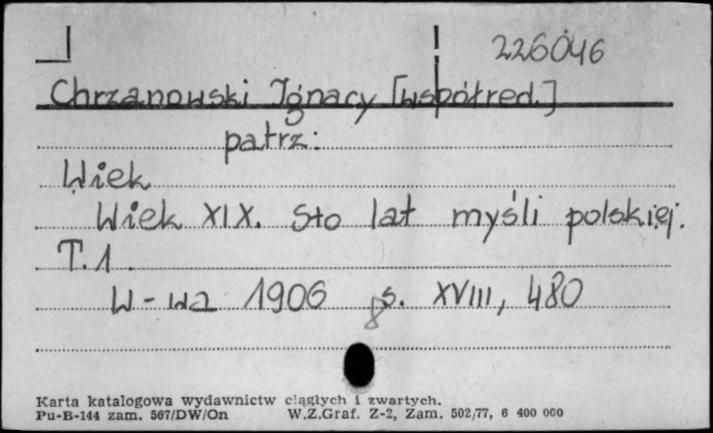 226046
Chrzanowski Ignacy [współred.]
patrz:
Wiek
Wiek XIX. Sto lat myśli polskiej.
T.1.
W-wa 1906 8 s. XVIII, 480
Karta katalogowa wydawnictw ciągłych i zwartych.
Pu-B-144 zam. 567/DW/On W.Z.Graf. Z-2, Zam. 502/77, 6 400 000